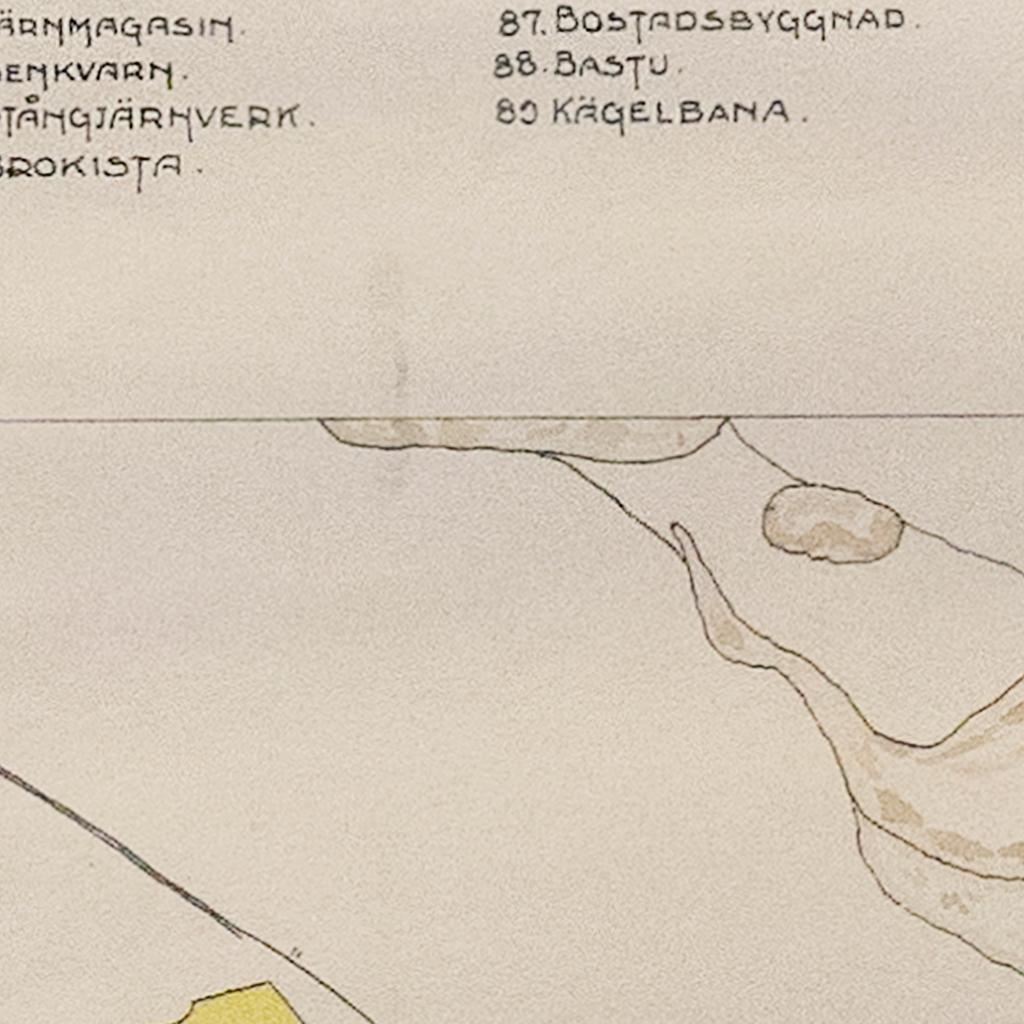 ÄRNMAGASIN.
ENKVARN.
TÅNGJÄRNVERK.
BROKISTA.
87. BOSTADSBYGGNAD.
88. BASTU.
89 KÄGELBANA.